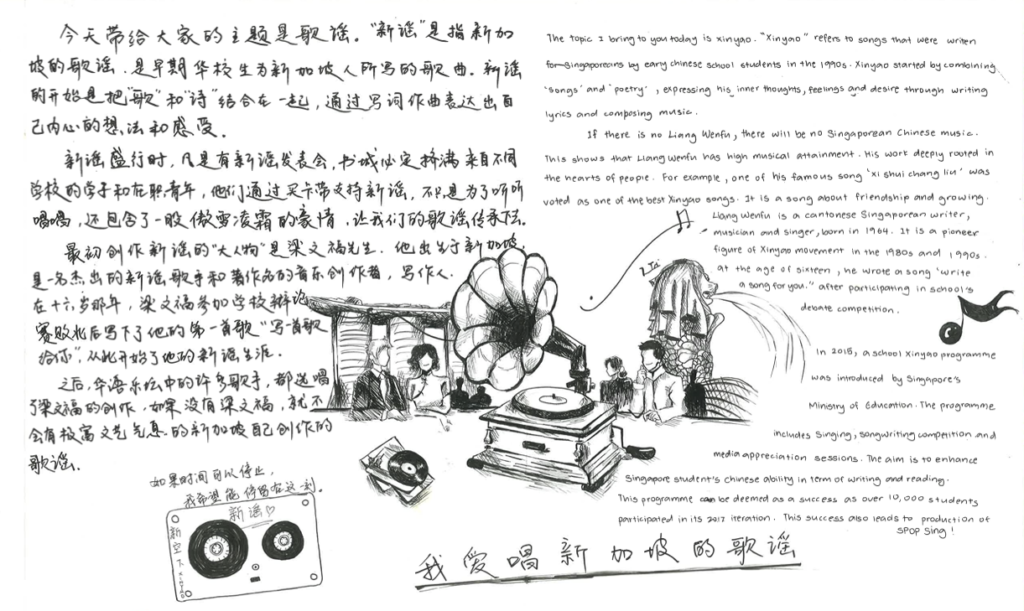 今天带给大家的主题是歌谣。"新谣"是指新加
坡的歌谣.是早期华校生为新加坡人所写的歌曲.新谣
的开始是把"歌"和"诗"结合在一起,通过写词作曲表达出自
己内心的想法和感受。
新谣盛行时,凡是有新谣发表会,书城必定挤满来自不同
学校的学子和在职青年,他们通过买卡带支持新谣,不只是为了听听
唱唱,还包含了一股傲雪凌霜的豪情,让我们的歌谣传承下去.
最初创作新谣的"大人物"是梁文福先生.他出生于新加坡.
是一名杰出的新谣歌手和著作名的音乐创作者,写作人.
在十六岁那年,梁文福参加学校辩论
赛败北后写下了他的第一首歌"写一首歌
给你",从此开始了他的新谣生涯.
之后,华语乐坛中的许多歌手,都选唱
了梁文福的创作.如果没有梁文福,就不
会有极富文艺气息的新加坡自己创作的
歌谣.
如果时间可以停止,
我希望能停留在这一刻.
新谣♡
新空下
The topic I bring to you today is xinyao. "Xinyao" refers to songs that were writen
for Singaporeans by early chinese school students in the 1990s. Xinyao started by combining
'songs' and 'poetry', expressing his inner thoughts, feelings and desire through writing
lyrics and composing music.
If there is no Liang Wenfu, there will be no Singaporean Chinese music.
This shows that Liang Wenfu has high musical attainment. His work deeply rooted in
the hearts of people. For example, one of his famous song 'xi shui chang liu' was
voted as one of the best Xinyao songs. It is a song about friendship and growing.
Liang Wenfu is a cantonese Singaporean writer,
musician and singer, born in 1964. It is a pioneer
figure of Xinyao movement in the 1980s and 1990s.
at the age of sixteen, he wrote a song 'write
a song for you." after participating in school's
debate competition.
In 2015, a school Xinyao programme
was introduced by Singapore's
Ministry of Education. The programme
includes Singing, Songwriting competition and
media appreciation sessions. The aim is to enhance
Singapore student's Chinese ability in term of writing and reading.
This programme can be deemed as a success as over 10,000 students
participated in its 2017 iteration. This success also leads to production of
SPOP Sing!
我爱唱新加坡的歌谣